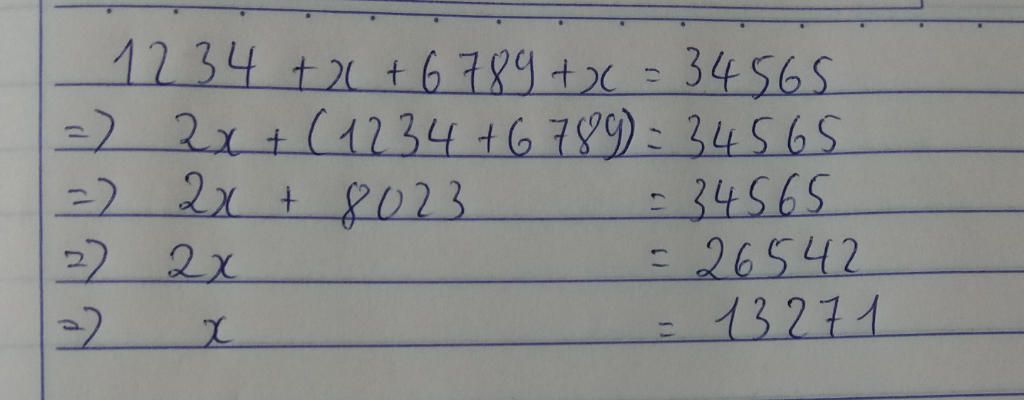 1234 + x + 6789 + x = 34565
=> 2x + (1234 + 6789) = 34565
=> 2x + 8023 = 34565
=> 2x = 26542
=> x = 13271